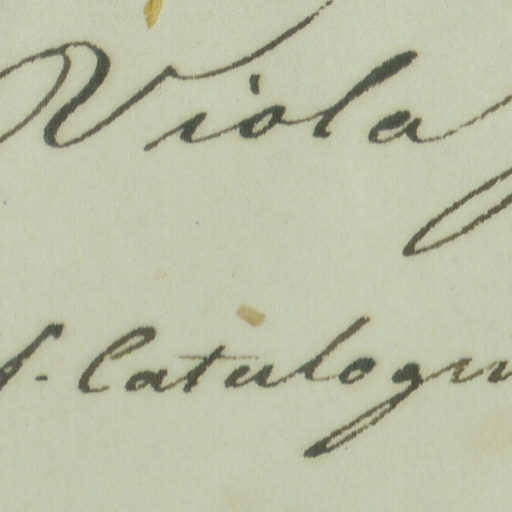 Viola
f. Catalogni